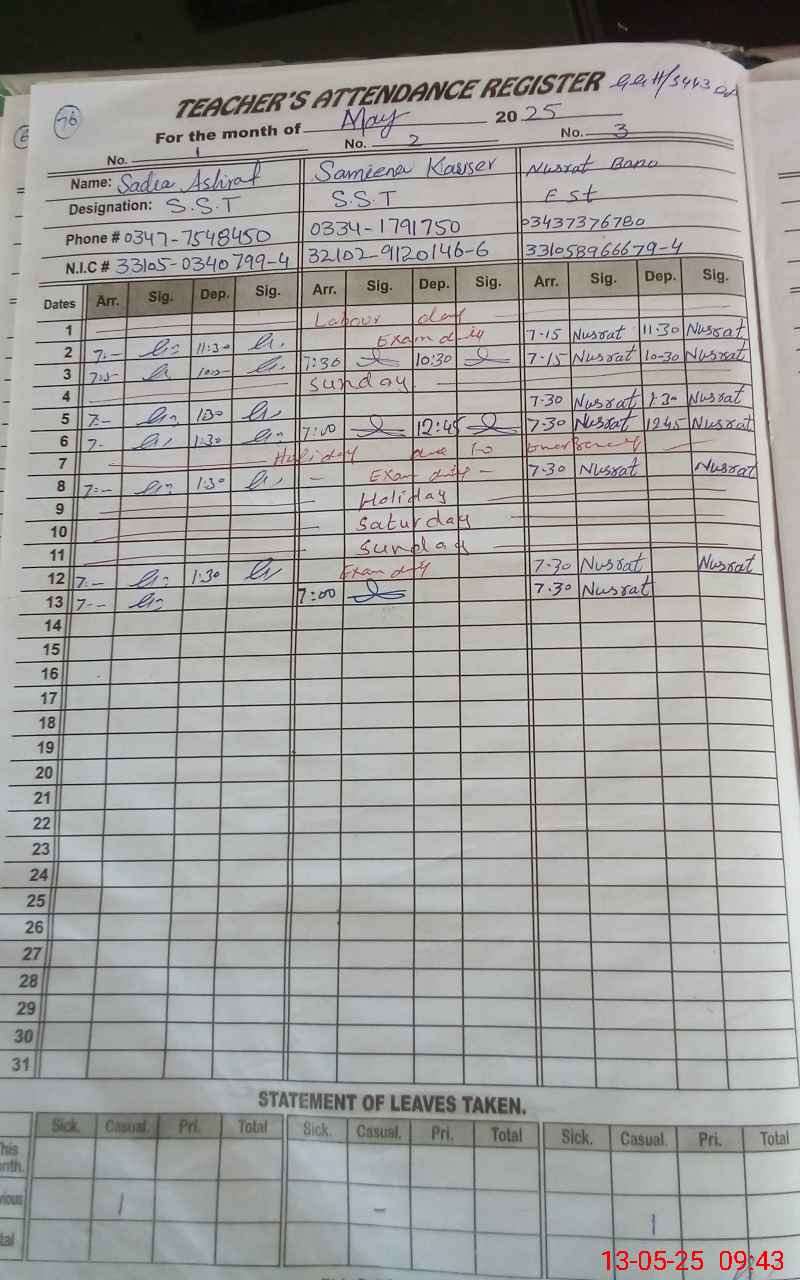 TEACHER'S ATTENDANCE REGISTER
76
For the month of May 2025
No. 1 No. 2 No. 3
Name: Sadia Ashraf Samiena Kauser Nusrat Bano
Designation: S.S.T S.S.T E St
Phone # 0347-7548450 0334-1791750 03437376780
N.I.C # 33105-0340799-4 32102-9120146-6 331058966679-4
Dates Arr. Sig. Dep. Sig. Arr. Sig. Dep. Sig. Arr. Sig. Dep. Sig.
1 Labour day
2 7:- 11:30 Exam duty 7-15 Nusrat 11-30 Nusrat
3 7:30 10:30 7-15 Nusrat 10-30 Nusrat
4 Sunday
5 7:- 1:30 7.30 Nusrat 1:30 Nusrat
6 7- 1:30 7:00 12:45 7-30 Nusrat 1245 Nusrat
7 Holiday due to Emergency
8 7:- 1:30 - Exam duty - 7-30 Nusrat Nusrat
9 Holiday
10 Saturday
11 Sunday
12 7:- 1:30 Exam duty 7-30 Nusrat Nusrat
13 7-- 7:00 7.30 Nusrat
14
15
16
17
18
19
20
21
22
23
24
25
26
27
28
29
30
31
STATEMENT OF LEAVES TAKEN.
Sick. Casual. Pri. Total Sick. Casual. Pri. Total Sick. Casual. Pri. Total
This
nth.
vious 1 - 1
tal
13-05-25 09:43